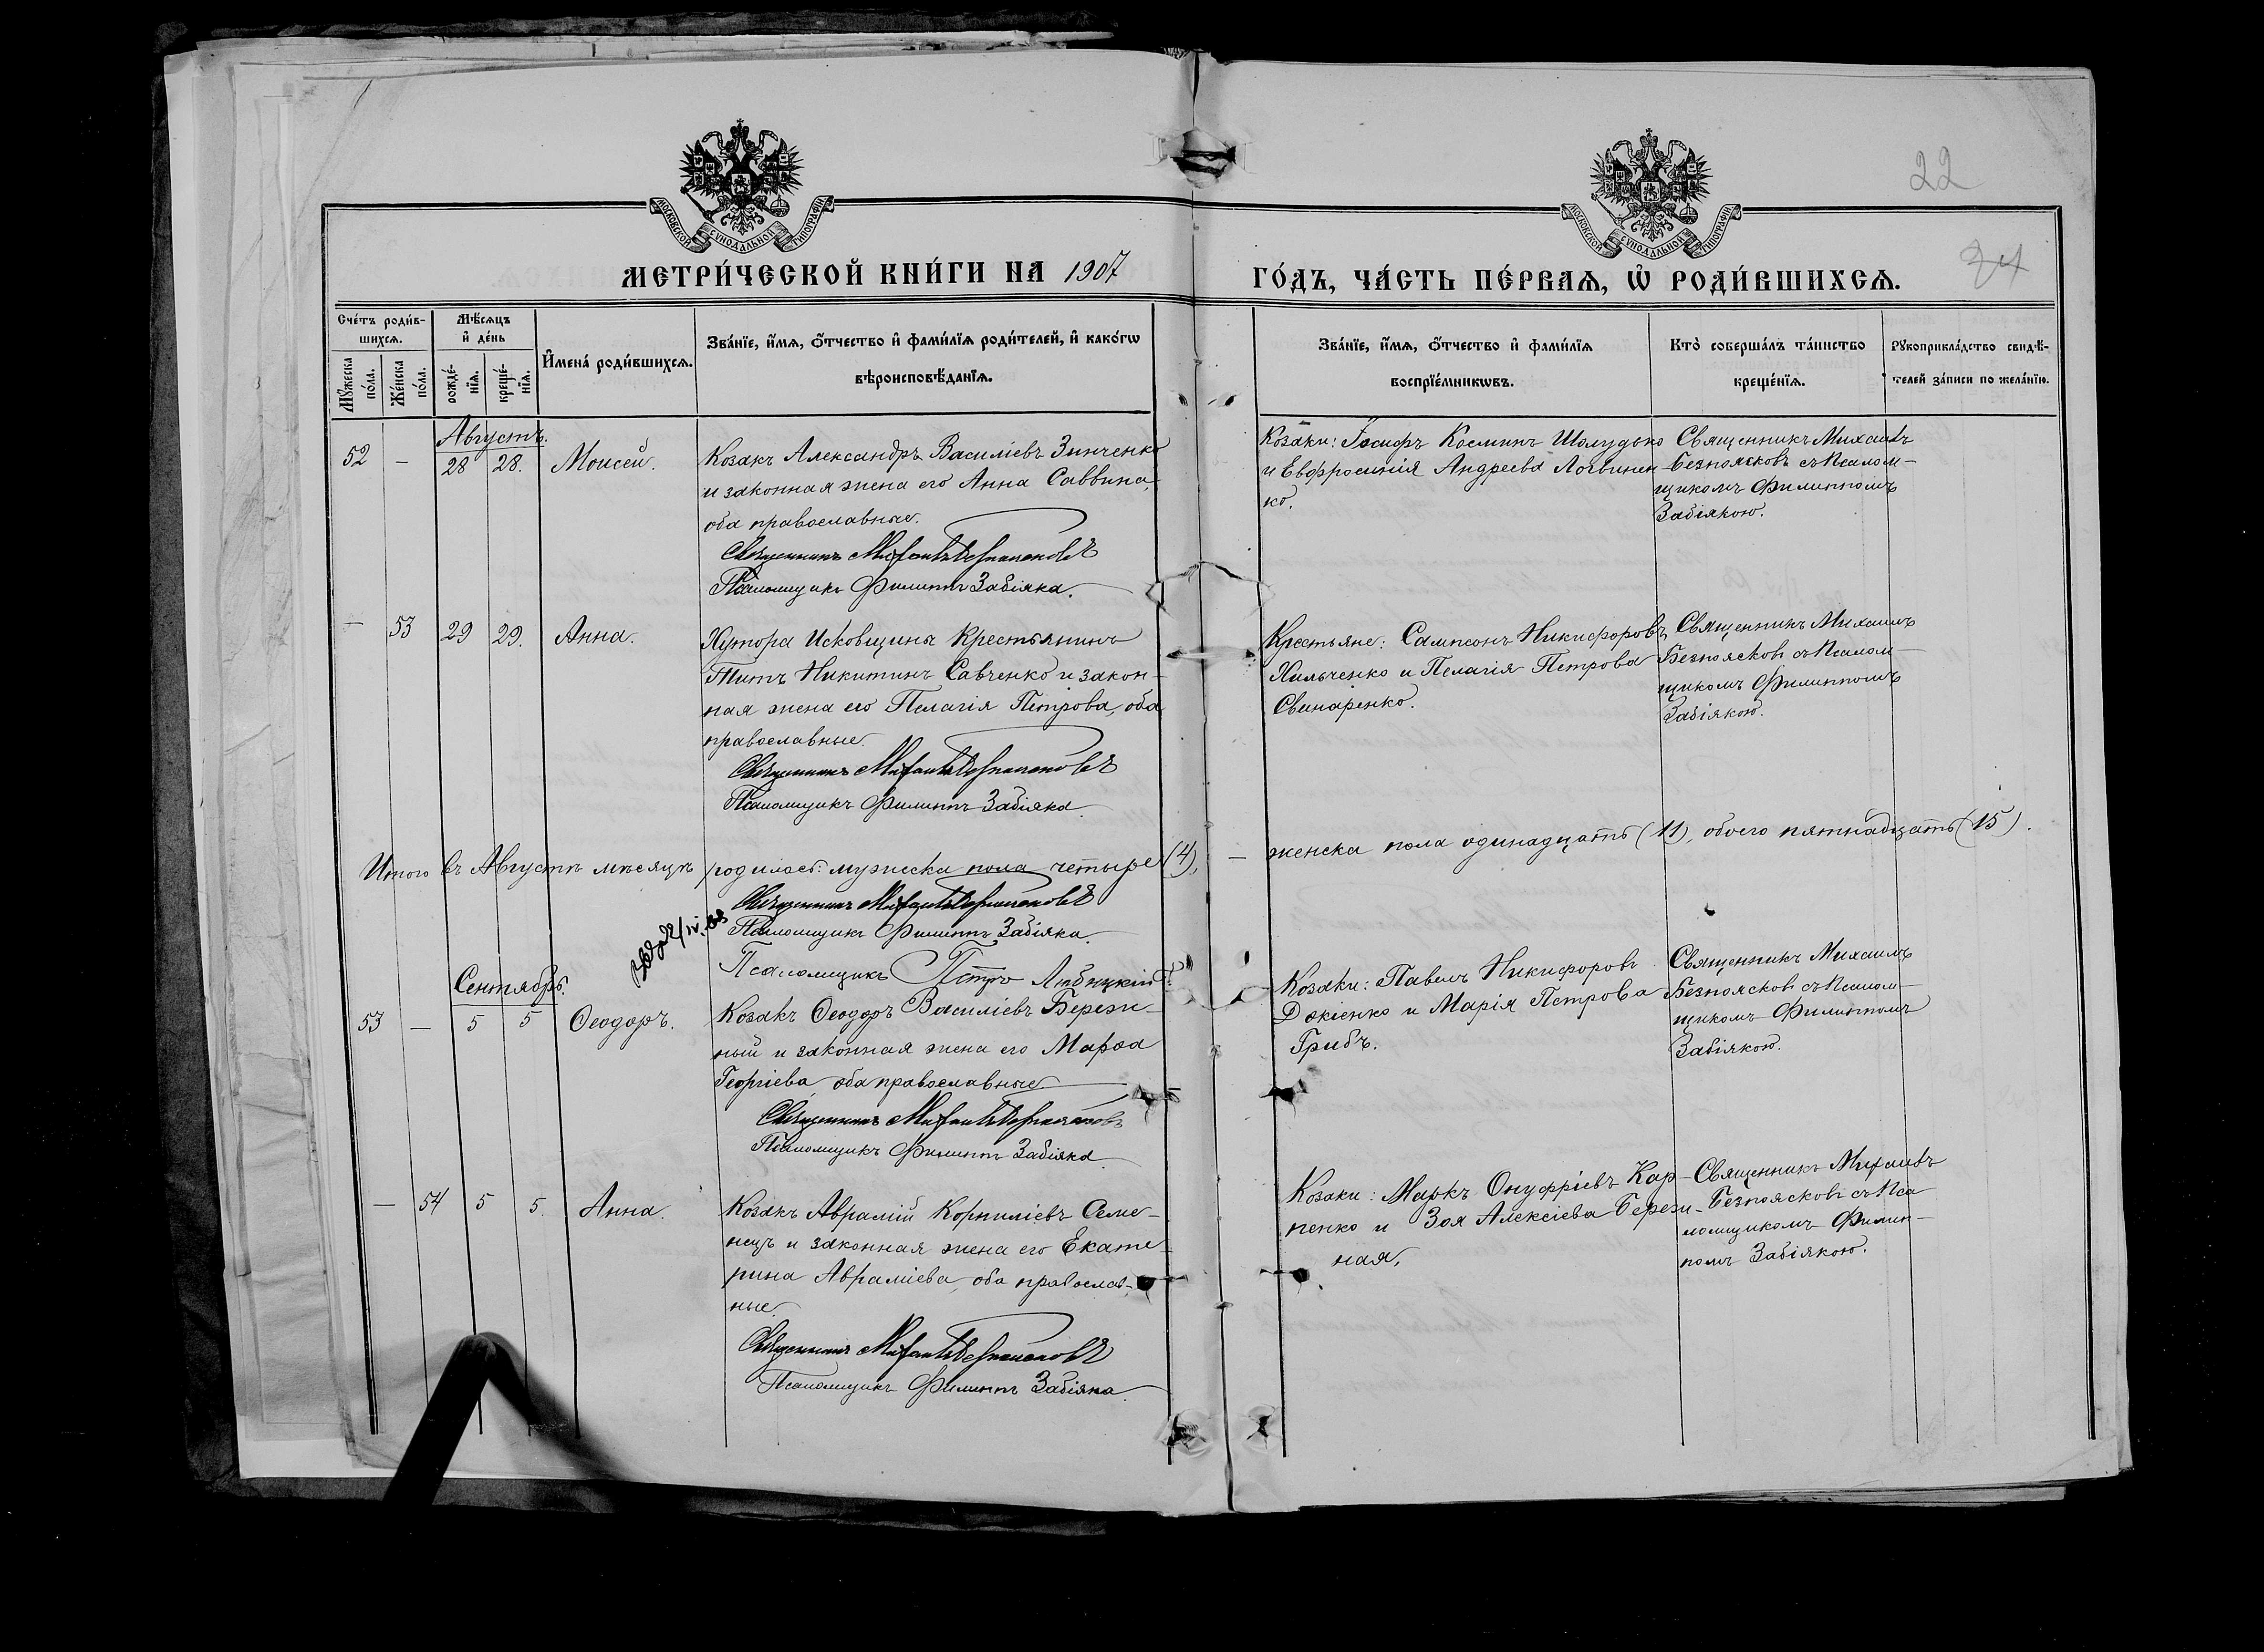 22
24
МОСКОВСКОЙ СѴНОДАЛЬНОЙ ТИПОГРАФІИ
МОСКОВСКОЙ СѴНОДАЛЬНОЙ ТИПОГРАФІИ
МЕТРИ́ЧЕСКОЙ КНИ́ГИ НА 1907
ГО́ДЪ, ЧА́СТЬ ПЕ́РВАѦ, Ѡ҆ РОДИ́ВШИХСѦ.
Сче́тъ роди́в-
шихсѧ.
Мѣ́сѧцъ
и҆ де́нь
Мꙋ́жеска
по́ла.
Же́нска
по́ла.
рожде́-
нїѧ.
креще́-
нїѧ.
И҆мена̀ роди́вшихсѧ.
Зва́нїе, и҆́мѧ, ѻ҆́тчество и҆ фами́лїѧ роди́телей, и҆ како́гѡ
вѣроисповѣ́данїѧ.
Зва́нїе, и҆́мѧ, ѻ҆́тчество и҆ фами́лїѧ
воспрїе́мникѡвъ.
Кто̀ соверша́лъ та́инство
креще́нїѧ.
Рꙋкоприкла́дство свидѣ́-
телей за́писи по жела́нїю.
Августъ.
52 — 28 28. Моисей.
Козакъ Александръ Василіевъ Зинченко
и законная жена его Анна Саввина,
оба православные.
Священникъ Михаилъ Безпоясковъ
Псаломщикъ Филиппъ Забіяка.
Козаки: Іосифъ Косминъ Шолудько
и Евфросинія Андреева Логвинен-
ко.
Священникъ Михаилъ
Безпоясковъ съ Псалом-
щикомъ Филиппомъ
Забіякою.
— 53 29 29. Анна.
Хутора Исковщины Крестьянинъ
Титъ Никитинъ Савченко и закон-
ная жена его Пелагія Петрова, оба
православные.
Священникъ Михаилъ Безпоясковъ
Псаломщикъ Филиппъ Забіяка.
Крестьяне: Сампсонъ Никифоровъ
Хильченко и Пелагія Петрова
Свинаренко.
Священникъ Михаилъ
Безпоясковъ съ Псалом-
щикомъ Филиппомъ
Забіякою.
Итого въ Августѣ мѣсяцѣ родилось: мужеска пола четыре (4), — женска пола одинадцать (11), обоего пятнадцать (15).
Священникъ Михаилъ Безпоясковъ
Псаломщикъ Филиппъ Забіяка.
Псаломщикъ Петръ
Сентябрь.
53 — 5 5 Ѳеодоръ.
Козакъ Ѳеодоръ Василіевъ Берези-
ный и законная жена его Марѳа
Георгіева, оба православные
Священникъ Михаилъ Безпоясковъ
Псаломщикъ Филиппъ Забіяка.
Козаки: Павелъ Никифоровъ
Докіенко и Марія Петрова
Грибъ.
Священникъ Михаилъ
Безпоясковъ съ Псалом-
щикомъ Филиппомъ
Забіякою.
— 54 5 5. Анна.
Козакъ Аврамій Корниліевъ Семе-
нецъ и законная жена его Екате-
рина Авраміева, оба православ-
ные.
Священникъ Михаилъ Безпоясковъ
Псаломщикъ Филиппъ Забіяка.
Козаки: Маркъ Онуфріевъ Кар-
пенко и Зоя Алексіева Берези-
ная,
Священникъ Михаилъ
Безпоясковъ съ Пса
ломщикомъ Филип-
помъ Забіякою.